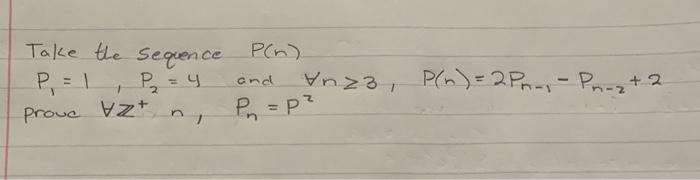 Take the sequence P(n)
P₁ = 1 , P₂ = 4 and ∀n≥3, P(n) = 2Pₙ₋₁ - Pₙ₋₂ + 2
prove ∀Z⁺ n, Pₙ = P²